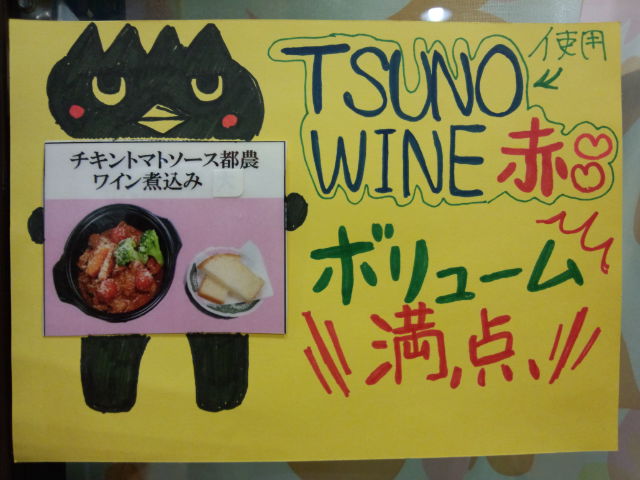 チキントマトソース都農
ワイン煮込み
使用
TSUNO
WINE赤
ボリューム
満点